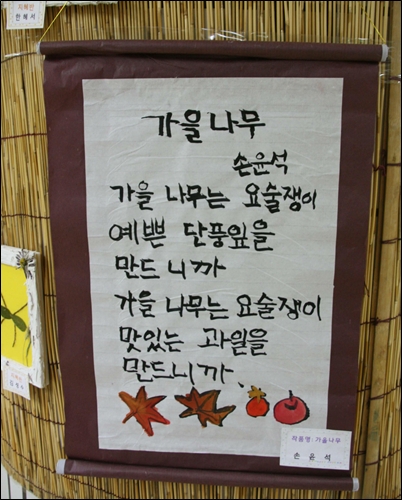 지혜반
한혜서
가을나무
손윤석
가을 나무는 요술쟁이
예쁜 단풍잎을
만드니까
가을 나무는 요술쟁이
맛있는 과일을
만드니까.
작품명: 가을나무
손 윤 석